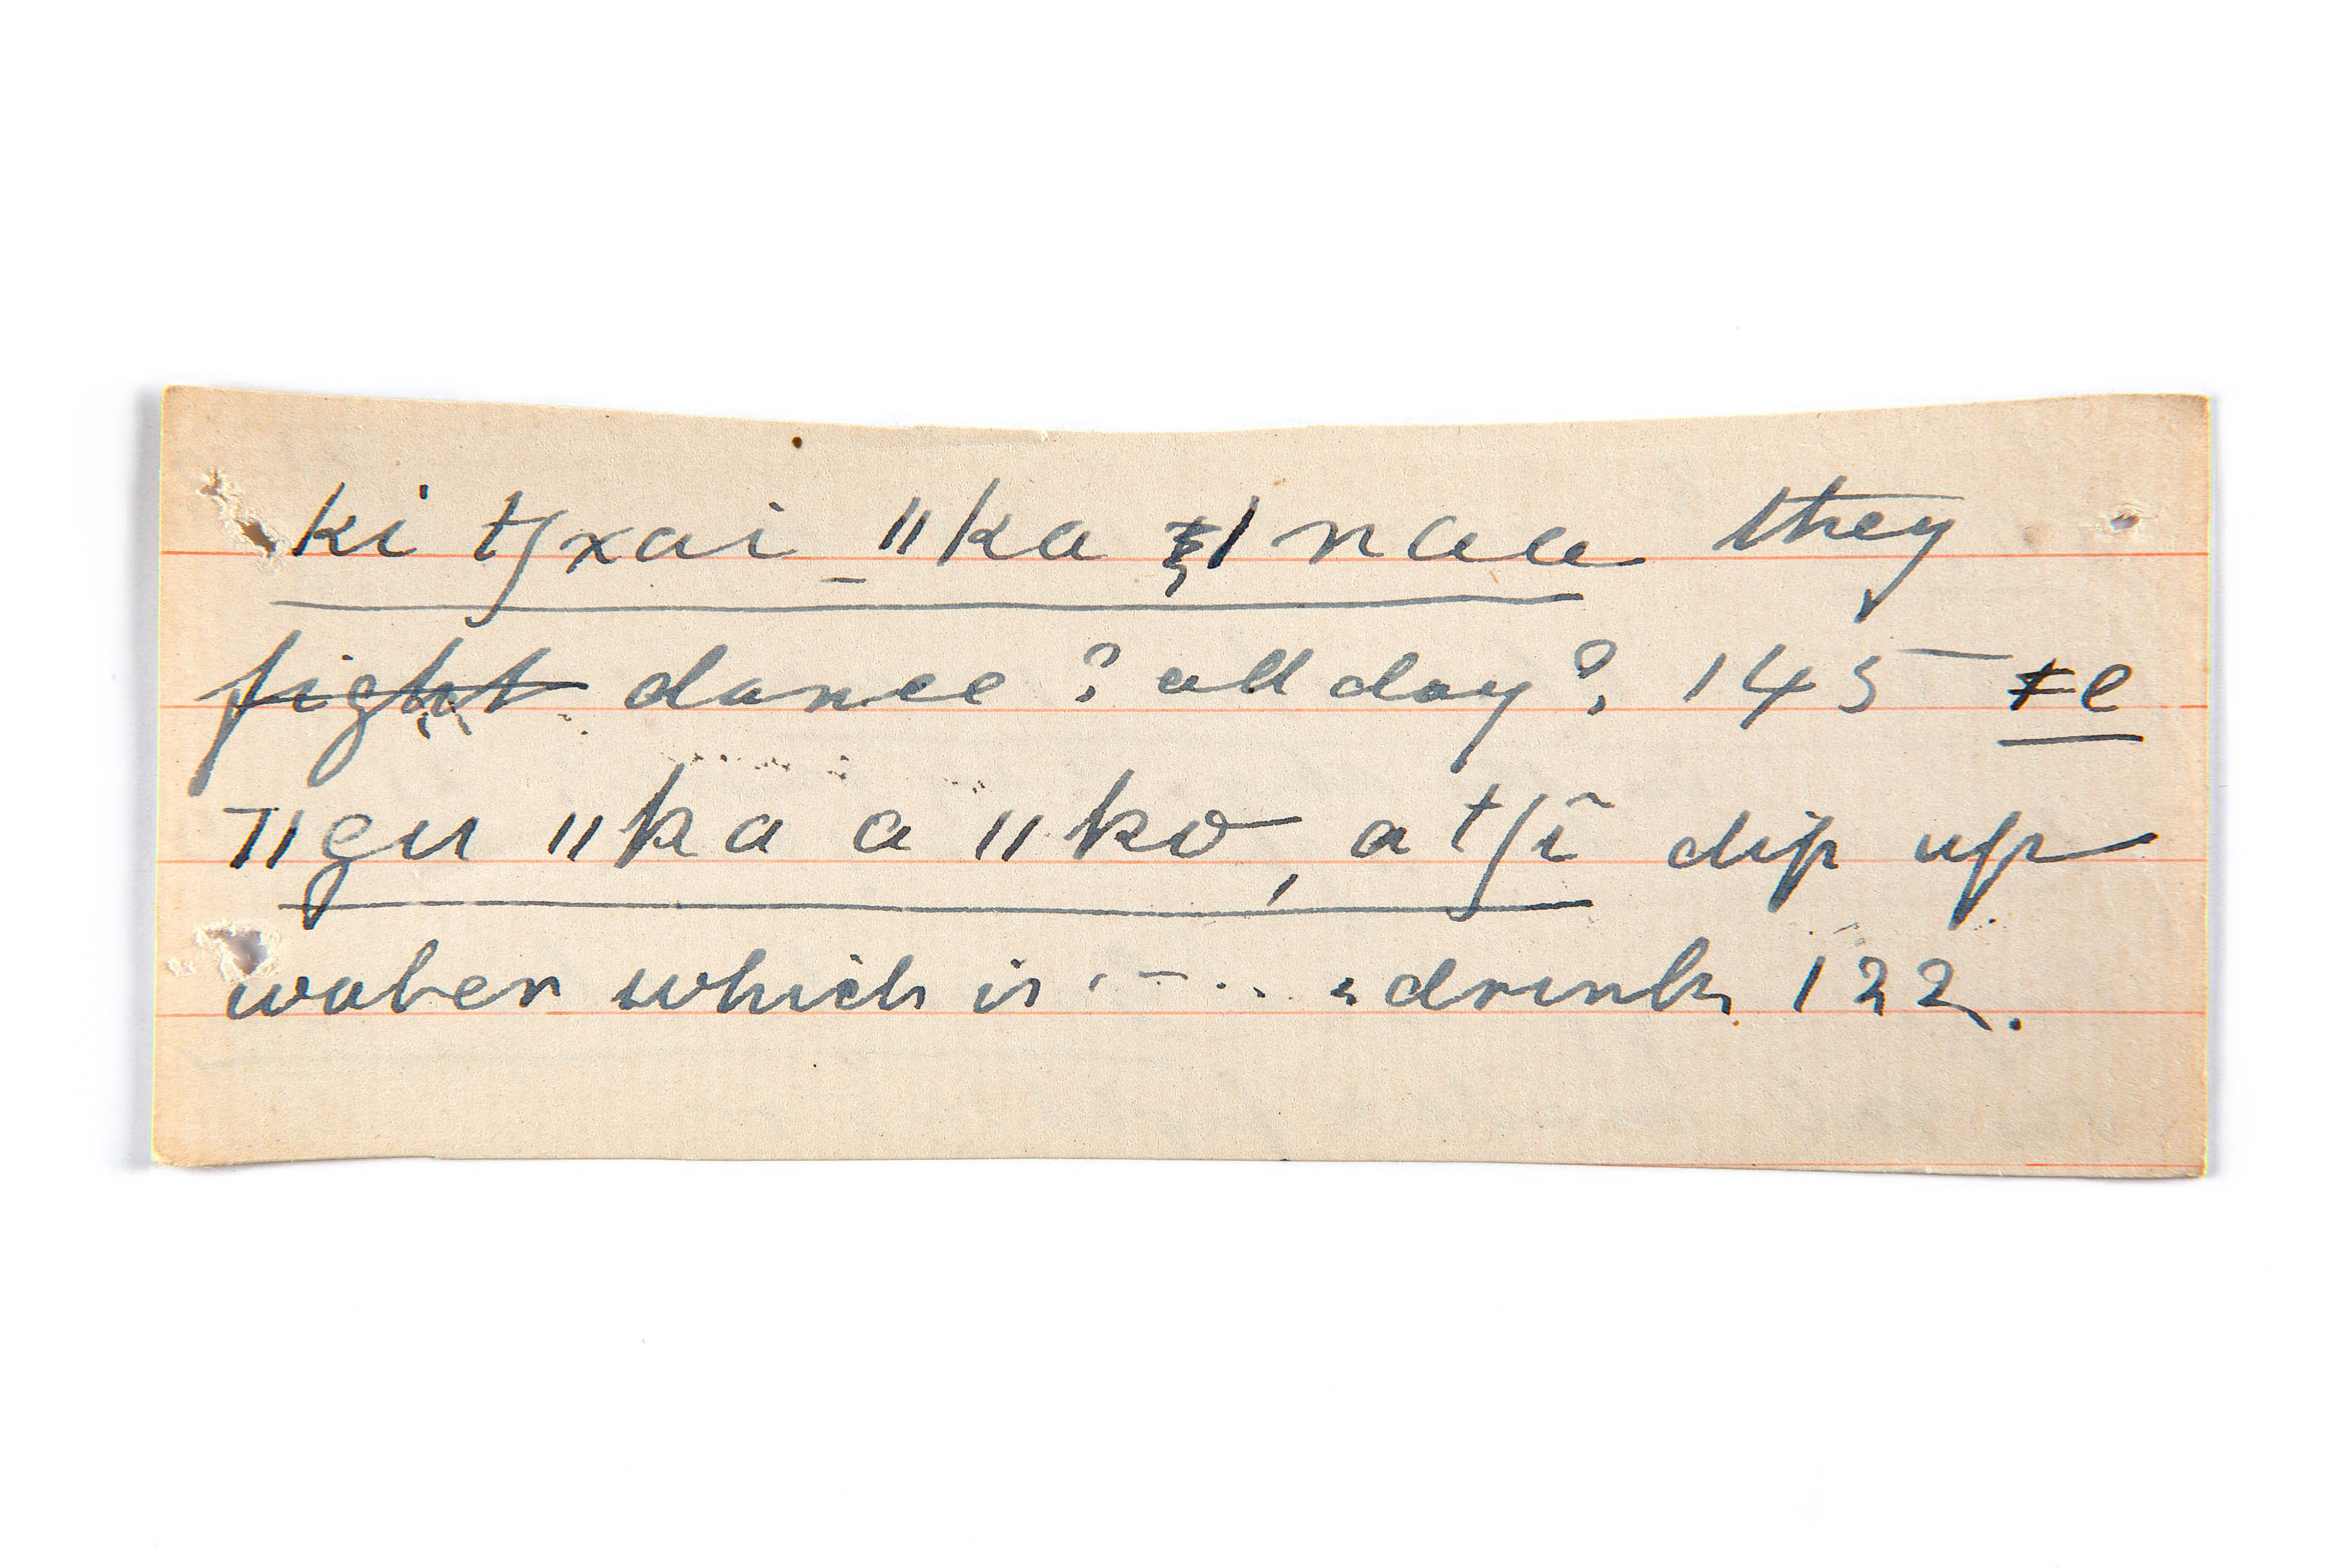 ki tʃxai _ ǁka ǀnaa they
fight dance ? all day?, 145 ǂe
ǁgu ǁka a ǁko, a tʃĩ dip up
water which is . - . . . drink, 122.